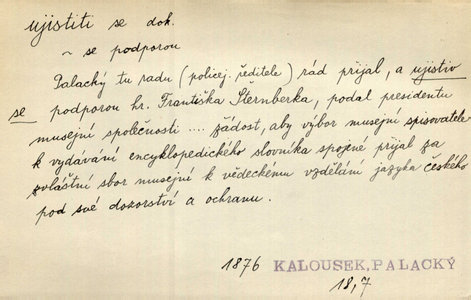 ujistiti se dok.
~ se podporou
Palacký tu radu (policej. ředitele) rád přijal, a ujistiv
se podporou hr. Františka Šternberka, podal presidentu
musejní společnosti .... žádost, aby výbor musejní spisovatele
k vydávání encyklopedického slovníka spojené přijal za
zvláštní sbor musejní k vědeckému vzdělání jazyka českého
pod své dozorství a ochranu.
1876 KALOUSEK, PALACKÝ
18,7